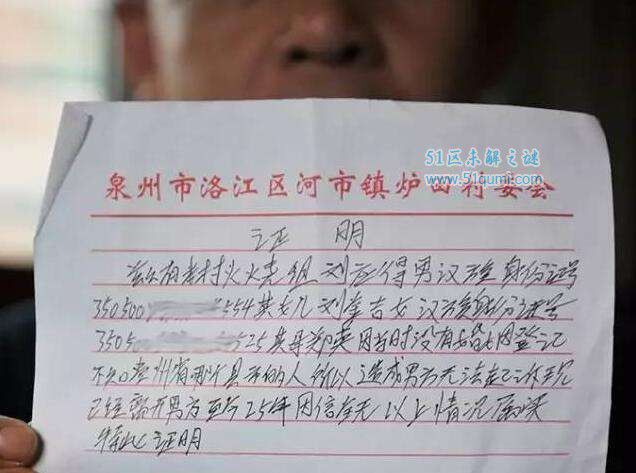 51区未解之谜
www.51qumi.com
泉州市洛江区河市镇炉田村委会
证明
兹有本村 组刘应得男汉族身份证号
350500 554其女儿刘奎吉女汉族身份证号
3505 525其母郑英因当时没有婚姻登记
不知 州省 县 的人所以造成男方无法
已经离开男方至今25年因信全无以上情况属实
特此证明